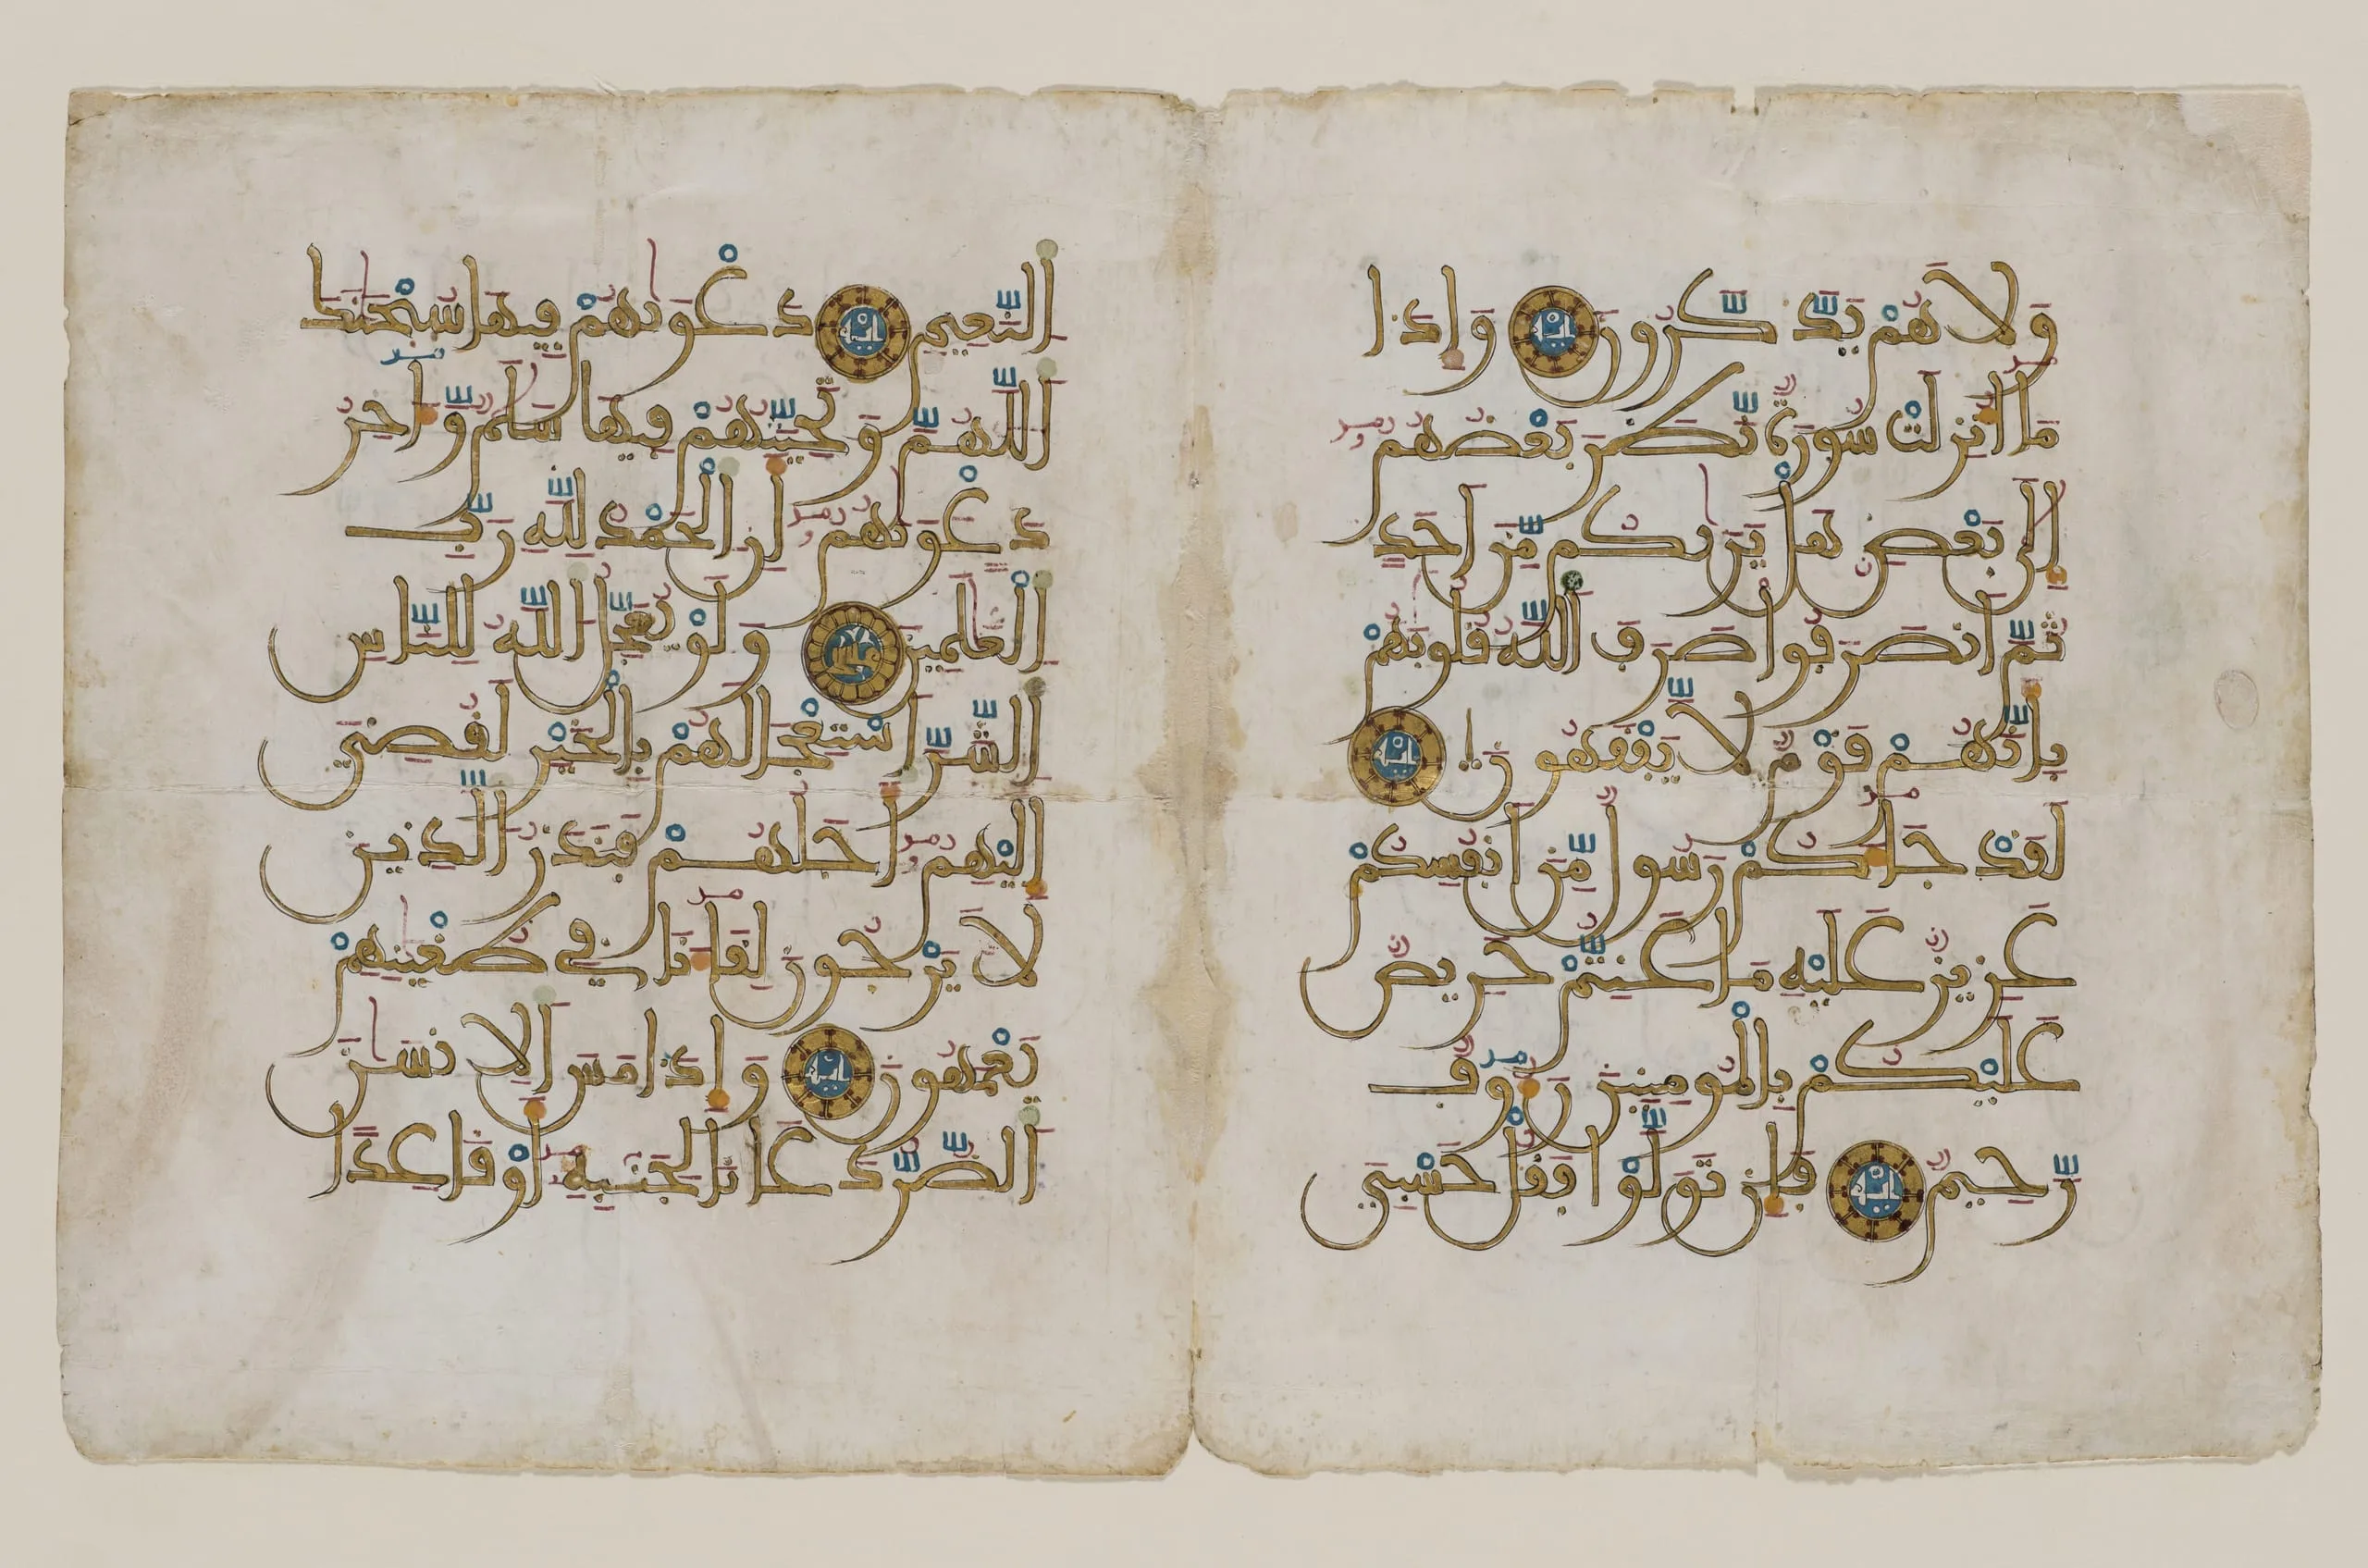 وَلَا هُمْ يَذَّكَّرُونَ اية وَإِذَا
مَا أُنزِلَتْ سُورَةٌ نَّظَرَ بَعْضُهُمُ
إِلَىٰ بَعْضٍ هَلْ يَرَىٰكُم مِّنْ أَحَدٍ
ثُمَّ ٱنصَرَفُوا صَرَفَ ٱللَّهُ قُلُوبَهُمْ
بِأَنَّهُمْ قَوْمٌ لَّا يَفْقَهُونَ اية
لَقَدْ جَاءَكُمْ رَسُولٌ مِّنْ أَنفُسِكُمْ
عَزِيزٌ عَلَيْهِ مَا عَنِتُّمْ حَرِيصٌ
عَلَيْكُمْ بِٱلْمُومِنِينَ رَءُوفٌ
رَّحِيمٌ اية فَإِن تَوَلَّوْا فَقُلْ حَسْبِيَ
ٱلنَّعِيمِ اية دَعْوَىٰهُمْ فِيهَا سُبْحَٰنَكَ
ٱللَّهُمَّ وَتَحِيَّتُهُمْ فِيهَا سَلَٰمٌ وَّءَاخِرُ
دَعْوَىٰهُمُ أَنِ ٱلْحَمْدُ لِلَّهِ رَبِّ
ٱلْعَٰلَمِينَ وَلَوْ يُعَجِّلُ ٱللَّهُ لِلنَّاسِ
ٱلشَّرَّ ٱسْتِعْجَالَهُمْ بِٱلْخَيْرِ لَقُضِيَ
إِلَيْهِمُ أَجَلُهُمْ فَنَذَرُ ٱلَّذِينَ
لَا يَرْجُونَ لِقَاءَنَا فِي طُغْيَٰنِهِمْ
يَعْمَهُونَ اية وَإِذَا مَسَّ ٱلْإِنسَٰنَ
ٱلضُّرُّ دَعَانَا لِجَنبِهِ أَوْ قَاعِدًا